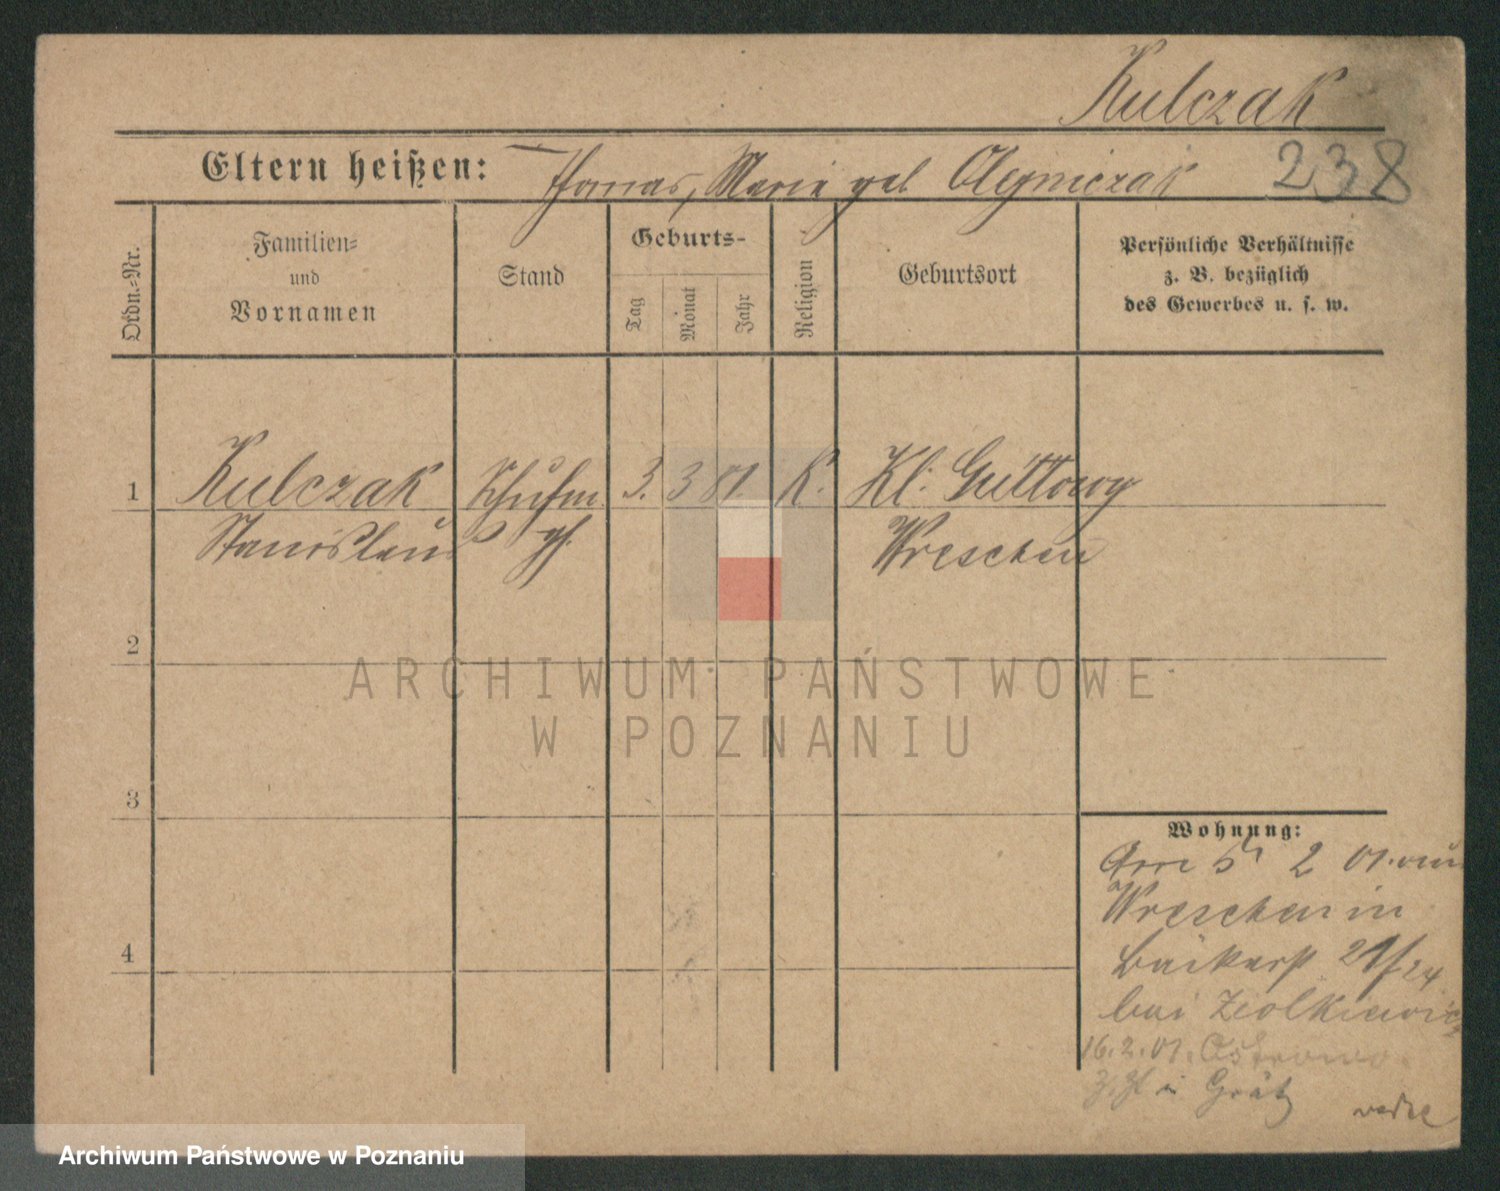 Kulczak
Eltern heißen: Thomas, Marie geb Olejniczak 238
Ordn.-Nr.
Familien-
und
Vornamen
Stand
Geburts-
Tag
Monat
Jahr
Religion
Geburtsort
Persönliche Verhältnisse
z. B. bezüglich
des Gewerbes u. s. w.
1 Kulczak Schuhm. 3. 3 81. K. Kl. Guttowy
Stanislaus gs. Wreschen
2
ARCHIWUM PAŃSTWOWE
W POZNANIU
3
Wohnung:
2 01. aus
Wreschen in
4
Bäckerst 21/24
bei Ziolkiewicz
16.2.01. Ostrowo
z. Zt in Grätz
Archiwum Państwowe w Poznaniu